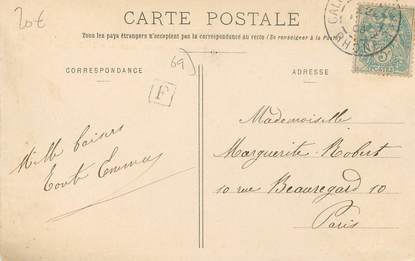 20€
CARTE POSTALE
Tous les pays étrangers n'acceptent pas la correspondance au recto (Se renseigner à la Poste)
CORRESPONDANCE
69
ADRESSE
F
Mille baisers
Mademoiselle
Marguerite Robert
10 rue Beauregard 10
Paris